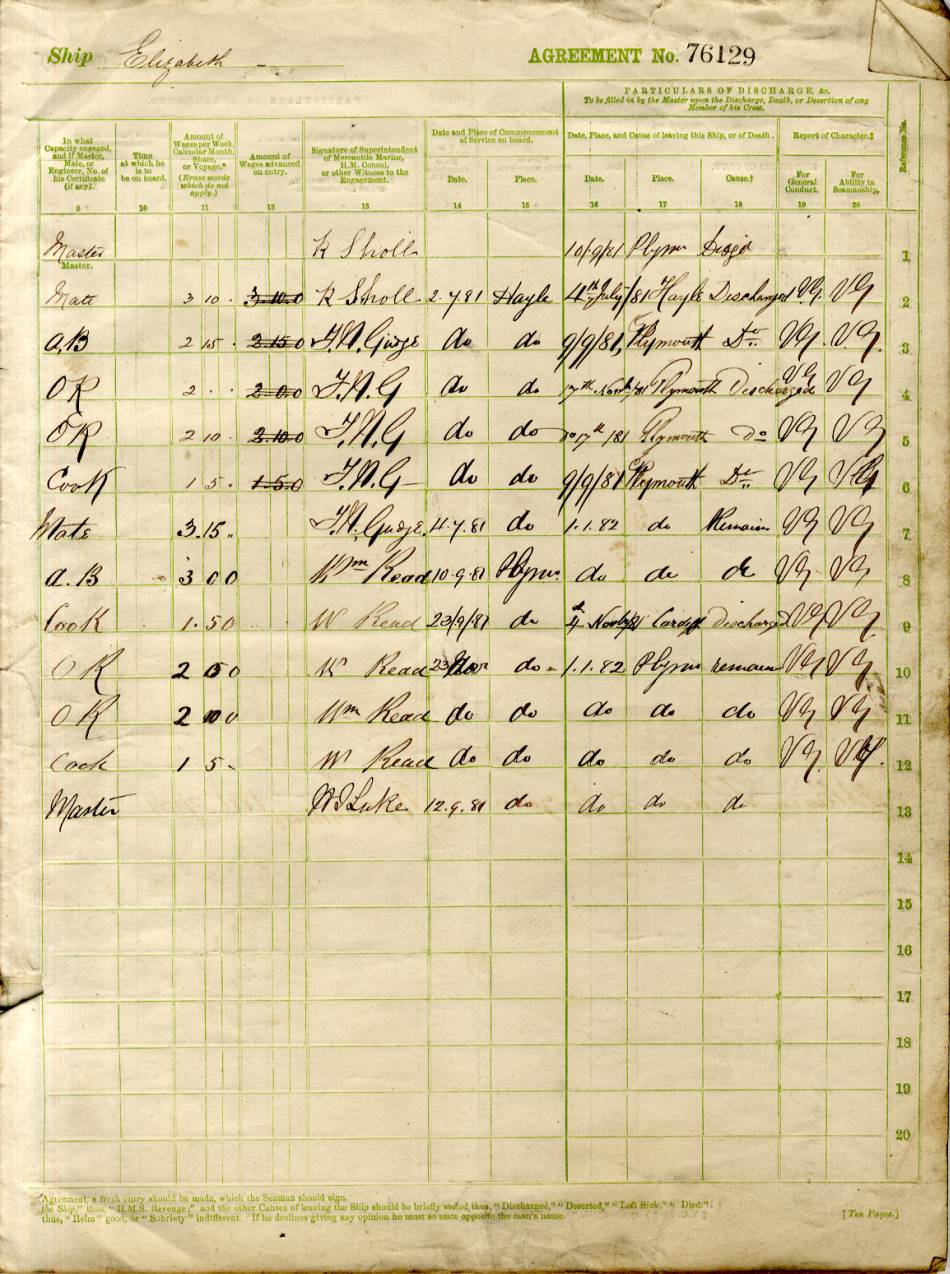 Ship Elizabeth AGREEMENT No. 76129
PARTICULARS OF DISCHARGE, &c.
To be filled in by the Master upon the Discharge, Death, or Desertion of any
Member of his Crew.
In what Capacity engaged, and if Master, Mate, or Engineer, No. of his Certificate (if any). Time at which he is to be on board. Amount of Wages per Week, Calendar Month, Share, or Voyage.* (Erase words which do not apply.) Amount of Wages advanced on entry. Signature of Superintendent of Mercantile Marine, H.M. Consul, or other Witness to the Engagement. Date and Place of Commencement of Service on board. Date. Place. Date, Place, and Cause of leaving this Ship, or of Death. Date. Place. Cause.† Report of Character.‡ For General Conduct. For Ability in Seamanship. Reference No.
9 10 11 12 13 14 15 16 17 18 19 20
Master R Sholl 10/9/81 Plym 1
Master.
Mate 3 10 . 3.10.0 R Sholl 2.7.81 Hayle 4th July/81 Hayle Discharged VG. VG 2
A.B 2 15 . 2.15.0 do do 9/9/81, Plymouth Do VG . VG. 3
2 . . 2.0.0 F.N.G do do 17th /81 Plymouth Discharged VG VG 4
2 10 . 2.10.0 F.N.G do do 17th /81 Plymouth Do VG VG 5
Cook 1 5 . 1.5.0 F.N.G do do 9/9/81 Plymouth Do VG VG 6
Mate 3.15 .. 4.7.81 do 1.1.82 do Remain VG VG 7
A.B 3 0 0 Wm Read 10.9.81 Plym. do do do VG VG 8
Cook 1.50 W Read 23/9/81 do 4 Novb/81 Cardiff Discharged VG VG 9
2 0 W Read 23 do 1.1.82 Plym remain VG VG 10
2 10 0 Wm Read do do do do do VG VG 11
Cook 1 5 - W Read do do do do do VG. VG. 12
Master Luke 12.9.81 do do do do 13
14
15
16
17
18
19
20
Agreement, a fresh entry should be made, which the Seaman should sign.
the Ship," thus, "H.M.S. Revenge;" and the other Causes of leaving the Ship should be briefly stated thus, "Discharged," "Deserted," "Left Sick," "Died."
thus, "Helm" good, or "Sobriety" indifferent. If he declines giving any opinion he must so state opposite the man's name. [Ten Pages.]